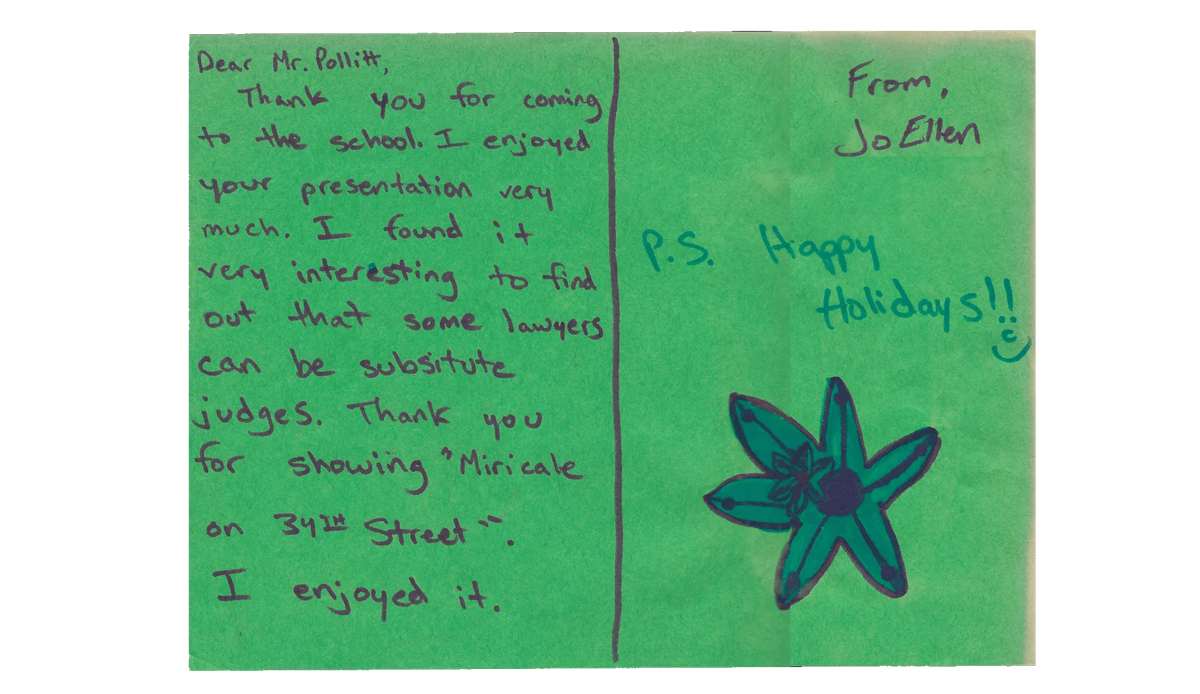 Dear Mr. Pollitt,
Thank you for coming
to the school. I enjoyed
your presentation very
much. I found it
very interesting to find
out that some lawyers
can be subsitute
judges. Thank you
for showing "Miricale
on 34TH Street".
I enjoyed it.
From,
Jo Ellen
P.S. Happy
Holidays!!